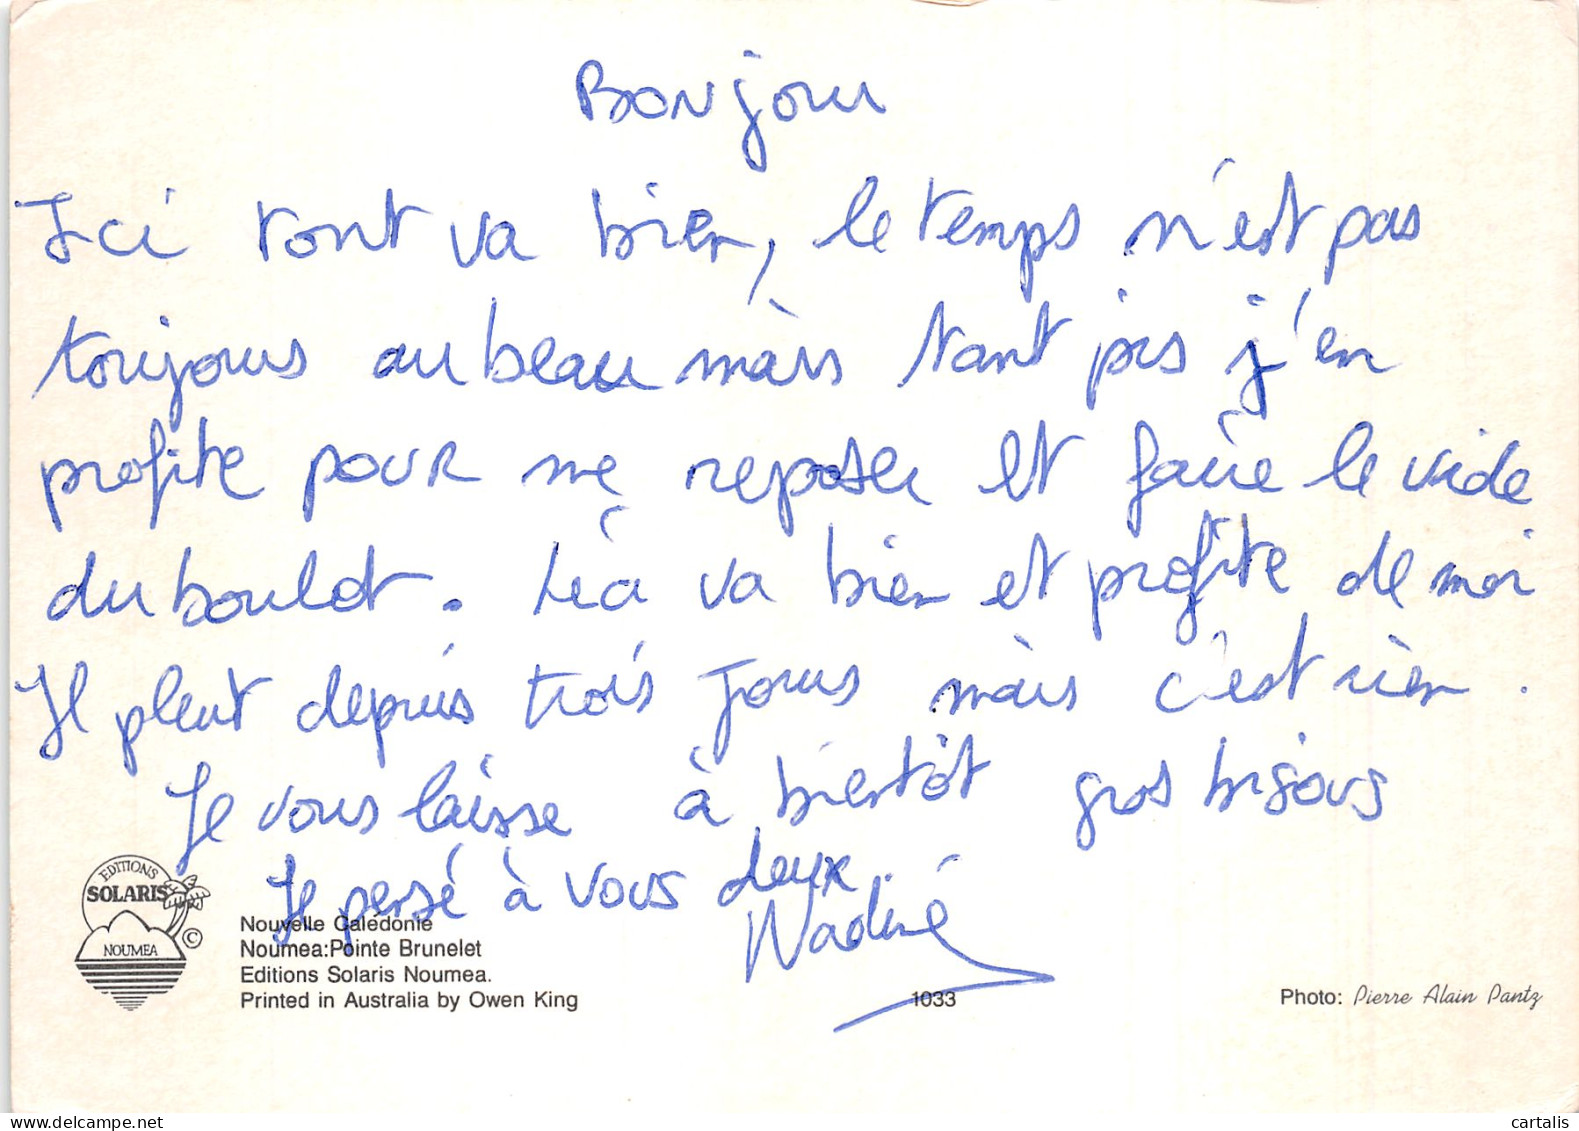 Bonjour
Ici tout va bien, le temps n'est pas
toujours au beau mais tant pis j'en
profite pour me reposer et faire le vide
du boulot. Léa va bien et profite de moi
Il pleut depuis trois jours mais c'est rien.
Je vous laisse à bientôt gros bisous
Je pensé à vous deux.
Nadine
EDITIONS
SOLARIS
NOUMEA
©
Nouvelle Calédonie
Noumea:Pointe Brunelet
Editions Solaris Noumea.
Printed in Australia by Owen King
1033
Photo: Pierre Alain Pantz
www.delcampe.net
cartalis